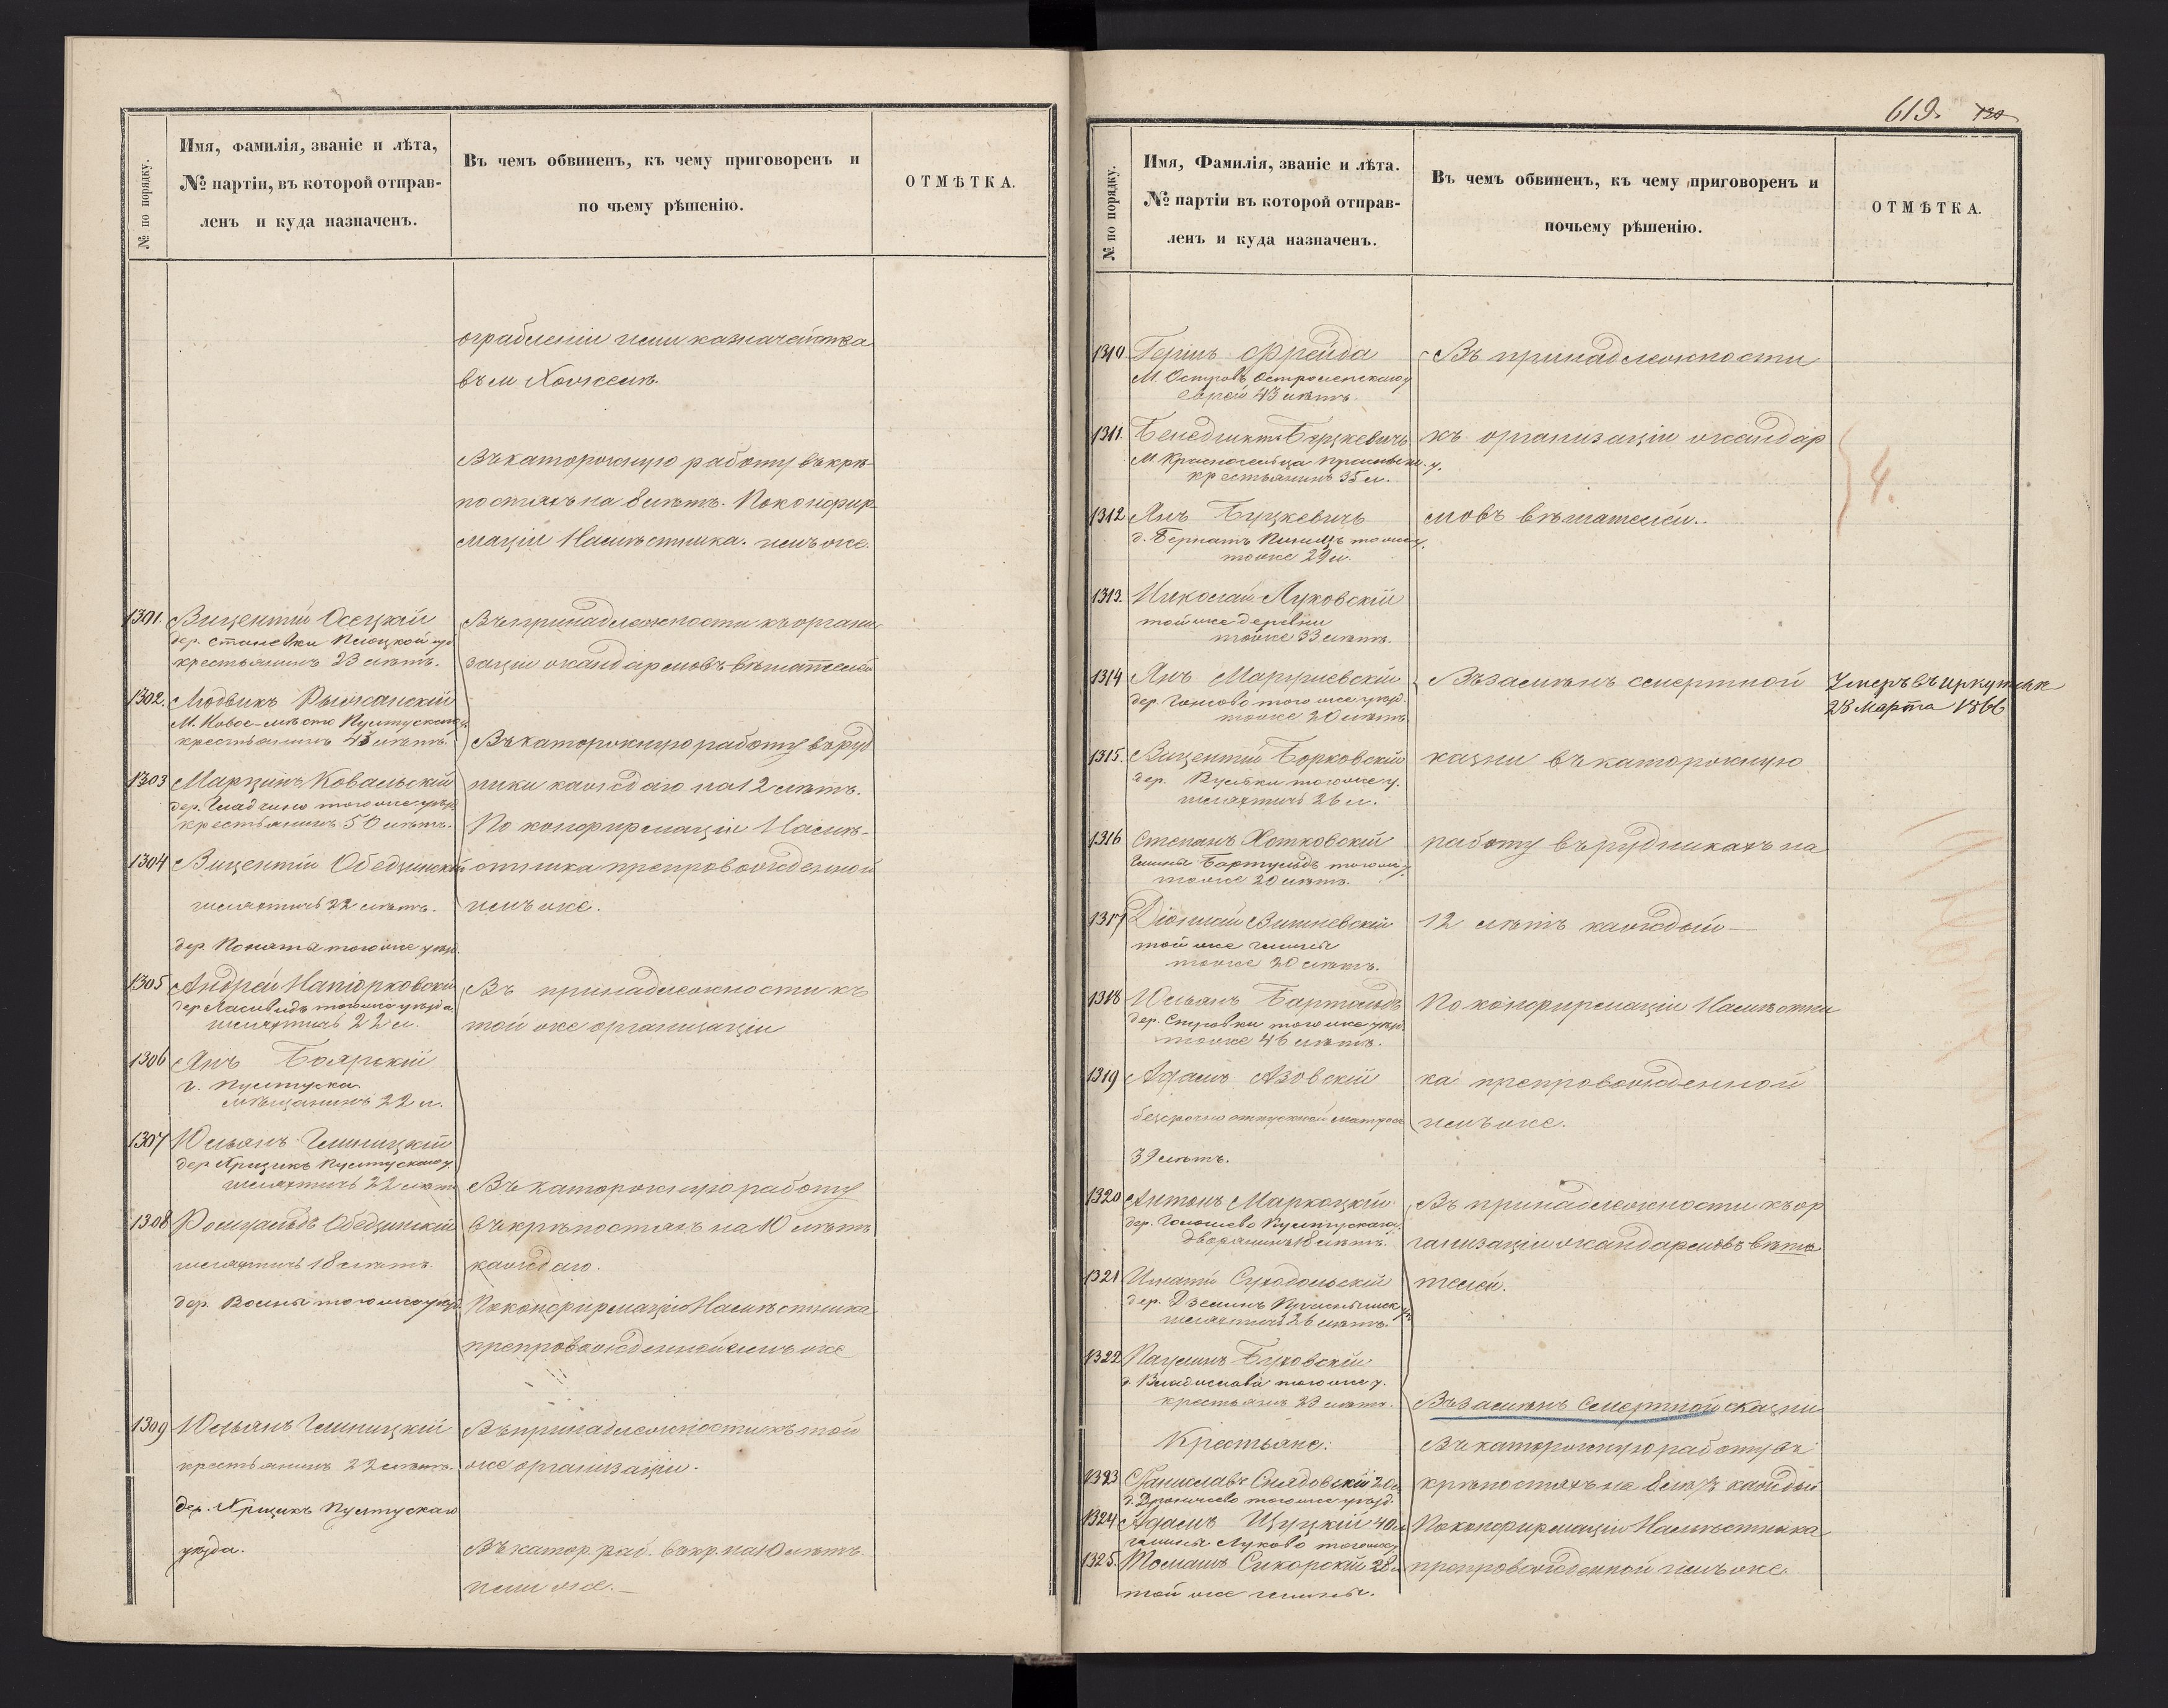 № по порядку.
Имя, фамилія, званіе и лѣта,
№ партіи, въ которой отправ-
ленъ и куда назначенъ.
Въ чемъ обвиненъ, къ чему приговоренъ и
по чьему рѣшенію.
ОТМѢТКА.
ограбленіи ими казначейства
въ м
Въ каторжную работу въ крѣ-
постяхъ на 8 лѣтъ. По конфир-
маціи Намѣстника. имъ же.
1301. Вицентій Осецкій
дер. Станевки Плоцкой
крестьянинъ 23 лѣтъ.
Въ принадлежности къ органи-
заціи жандармовъ вѣшателей
1302. Людвикъ Рыжанскій
М. Новое-мѣсто Пултускаго у.
крестьянинъ 43 лѣтъ.
Въ каторжную работу въ руд
1303 Марцинъ Ковальскій
дер. Гладчино того же уѣзд.
крестьянинъ 50 лѣтъ.
ники каждаго на 12 лѣтъ.
По конфирмаціи Намѣ-
1304 Вицентій Обедзинскій
шляхтичъ 22 лѣтъ.
дер. того же уѣзд.
стника препровожденной
имъ же.
1305 Андрей Напіорковскій
дер. того же уѣзда.
шляхтичъ 22 л.
Въ принадлежности къ
той же организаціи
1306 Янъ Боярскій
г. Пултуска.
мѣщанинъ 22 л.
1307 Юльянъ Глиницкій
дер. Пултускаго у.
шляхтичъ 22 лѣтъ
Въ каторжную работу
1308 Ромуальдъ Обедзинскій
шляхтичъ 18 лѣтъ.
дер. того же уѣзд.
въ крѣпостяхъ на 10 лѣтъ
каждаго.
По конфирмаціи Намѣстника
препровожденной имъ же
1309 Юльянъ Глиницкій
крестьянинъ 22 лѣтъ.
дер. Пултускаго
уѣзда.
Въ принадлежности къ той
же организаціи.
Въ катор. раб. въ кр. на 10 лѣтъ.
имъ же.
619. 120
№ по порядку.
Имя, Фамилія, званіе и лѣта.
№ партіи въ которой отправ-
ленъ и куда назначенъ.
Въ чемъ обвиненъ, къ чему приговоренъ и
почьему рѣшенію.
ОТМѢТКА.
1310 Гершъ Фрейда
М. Островъ Остроленскаго у
еврей 43 лѣтъ.
Въ принадлежности
1311. Бенедиктъ
М. Красносельца
крестьянинъ 35 л.
къ организаціи жандар
4.
1312 Янъ Буцкевичъ
тоже 29 л.
мовъ вѣшателей.
1313. Николай Луковскій
той же деревни
тоже 33 лѣтъ.
1314 Янъ Марушевскій
дер. того же уѣзд.
тоже 20 лѣтъ.
Въ замѣнъ смертной
Умеръ въ Иркутскѣ
28 Марта 1866
1315. Вицентій Борковскій
дер. того же у.
шляхтичъ 26 л.
казни въ каторжную
1316 Степанъ Хотковскій
гмины того же у.
тоже 20 лѣтъ.
работу въ рудникахъ на
1317 Діонизій Вишневскій
той же гмины
тоже 20 лѣтъ.
12 лѣтъ каждый
1318 Юльянъ Бартольдъ
дер. того же уѣзд.
тоже 46 лѣтъ.
По конфирмаціи Намѣстни
1319 Адамъ Азовскій
безсрочно отпускной матросъ
39 лѣтъ.
ка препровожденной
имъ же.
1320 Антонъ Маркоцкій
дер. Пултускаго
дворянинъ 18 лѣтъ.
Въ принадлежности къ ор
ганизаціи жандармовъ вѣша
1321 Игнатій Суходольскій
дер.
шляхтичъ 26 лѣтъ.
телей.
1322 Паулинъ Буковскій
д. Владислава того же у.
крестьян. 23 лѣтъ.
Въ замѣнъ смертной казни
Крестьяне:
Въ каторжную работу въ
1323 Станиславъ Снядовскій 20 л
того же уѣзд.
крѣпостяхъ на 8 лѣтъ каждый
1324 Адамъ Щуцкій 40 л
гмины Луково того же у
По конфирмаціи Намѣстника
1325. Томашъ Сикорскій 28 л
той же гмины.
препровожденной имъ же.